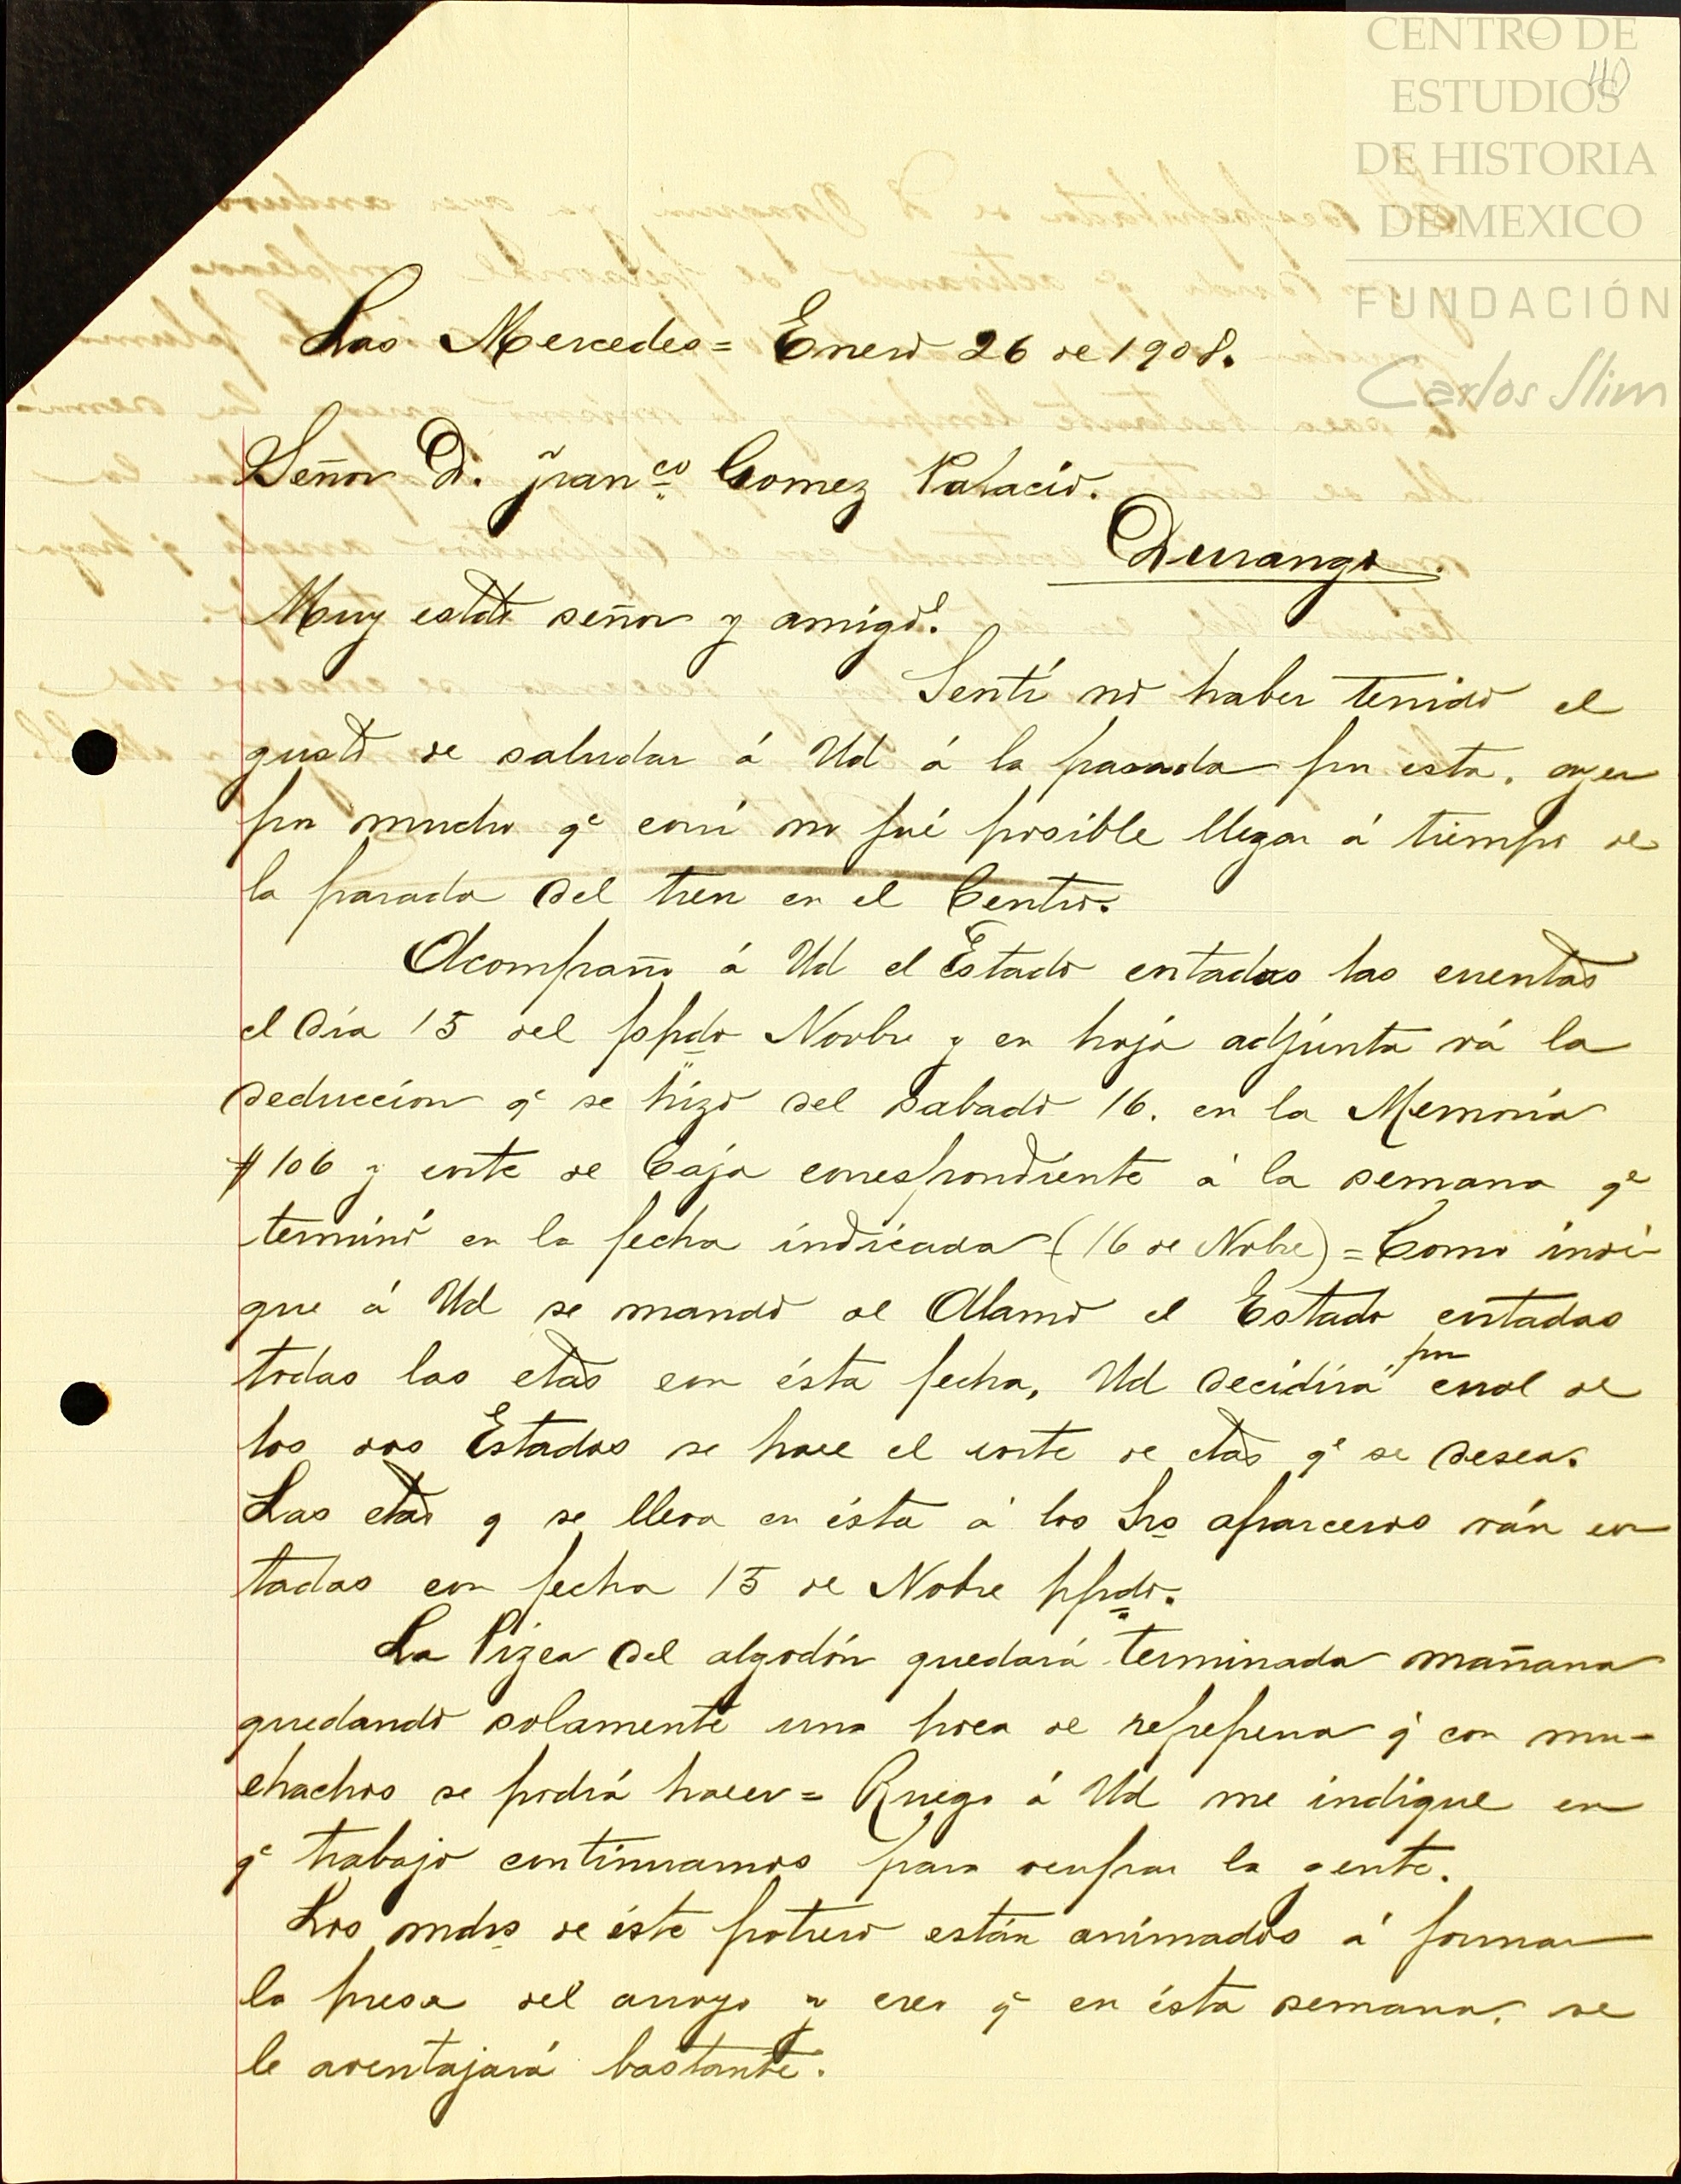 CENTRO DE
ESTUDIOS
DE HISTORIA
DE MEXICO
FUNDACIÓN
Carlos Slim
Las Mercedes = Enero 26 de 1908.
Señor D. Franco Gomez Palacio.
Durango.
Muy estdo señor y amigo:
Sentí no haber tenido el
gusto de saludar á Ud á la pasada por ésta, ayer
por mucho qe corrí no fué posible llegar á tiempo de
la parada del tren en el Centro.
Acompaño á Ud el Estado cortadas las cuentas
el día 15 del ppdo Novbre y en hoja adjunta vá la
deducción qe se hizo del sabado 16. en la Memoria
#106 y corte de Caja correspondiente á la semana qe
terminó en la fecha indicada (16 de Nobre) = Como indi-
que á Ud se mandó al Alamo el Estado cortadas
todas las ctas con ésta fecha, Ud decidirá por cual de
los dos Estados se hace el corte de ctas qe se desea.
Las ctas q se lleva en ésta á los Srs aparceros ván cor
tadas con fecha 15 de Nobre ppdo.
La Pizca del algodón quedará terminada mañana
quedando solamente una poca de repepena q con mu-
chachos se podrá hacer = Ruego á Ud me indique en
qe trabajo continuamos para ocupar la gente.
Los mdrs de éste potrero están animados á formar
la presa del arroyo y creo q en ésta semana, se
le aventajará bastante.